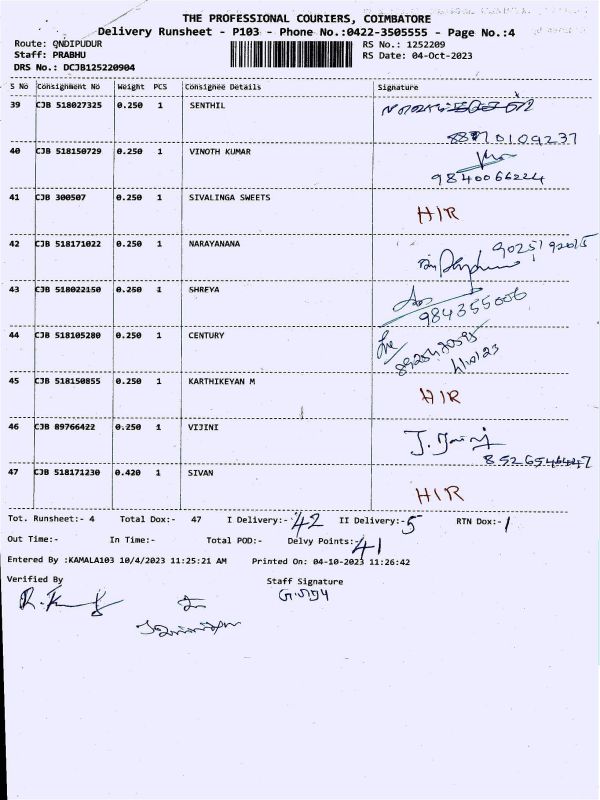 THE PROFESSIONAL COURIERS, COIMBATORE
Delivery Runsheet - P103 - Phone No.:0422-3505555 - Page No.:4
Route: ONDIPUDUR
RS No.: 1252209
Staff: PRABHU
RS Date: 04-Oct-2023
DRS No.: DCJB125220904
S No Consignment No Weight PCS Consignee Details Signature
39 CJB 518027325 0.250 1 SENTHIL
40 CJB 518150729 0.250 1 VINOTH KUMAR
9840066224
41 CJB 300507 0.250 1 SIVALINGA SWEETS HIR
42 CJB 518171022 0.250 1 NARAYANANA
43 CJB 518022150 0.250 1 SHREYA
984355006
44 CJB 518105280 0.250 1 CENTURY
4/10/23
45 CJB 518150855 0.250 1 KARTHIKEYAN M HIR
46 CJB 89766422 0.250 1 VIJINI
47 CJB 518171230 0.420 1 SIVAN HIR
Tot. Runsheet:- 4 Total Dox:- 47 I Delivery:- 42 II Delivery:- 5 RTN Dox:- 1
Out Time:- In Time:- Total POD:- Delvy Points:- 41
Entered By :KAMALA103 10/4/2023 11:25:21 AM Printed On: 04-10-2023 11:26:42
Verified By Staff Signature